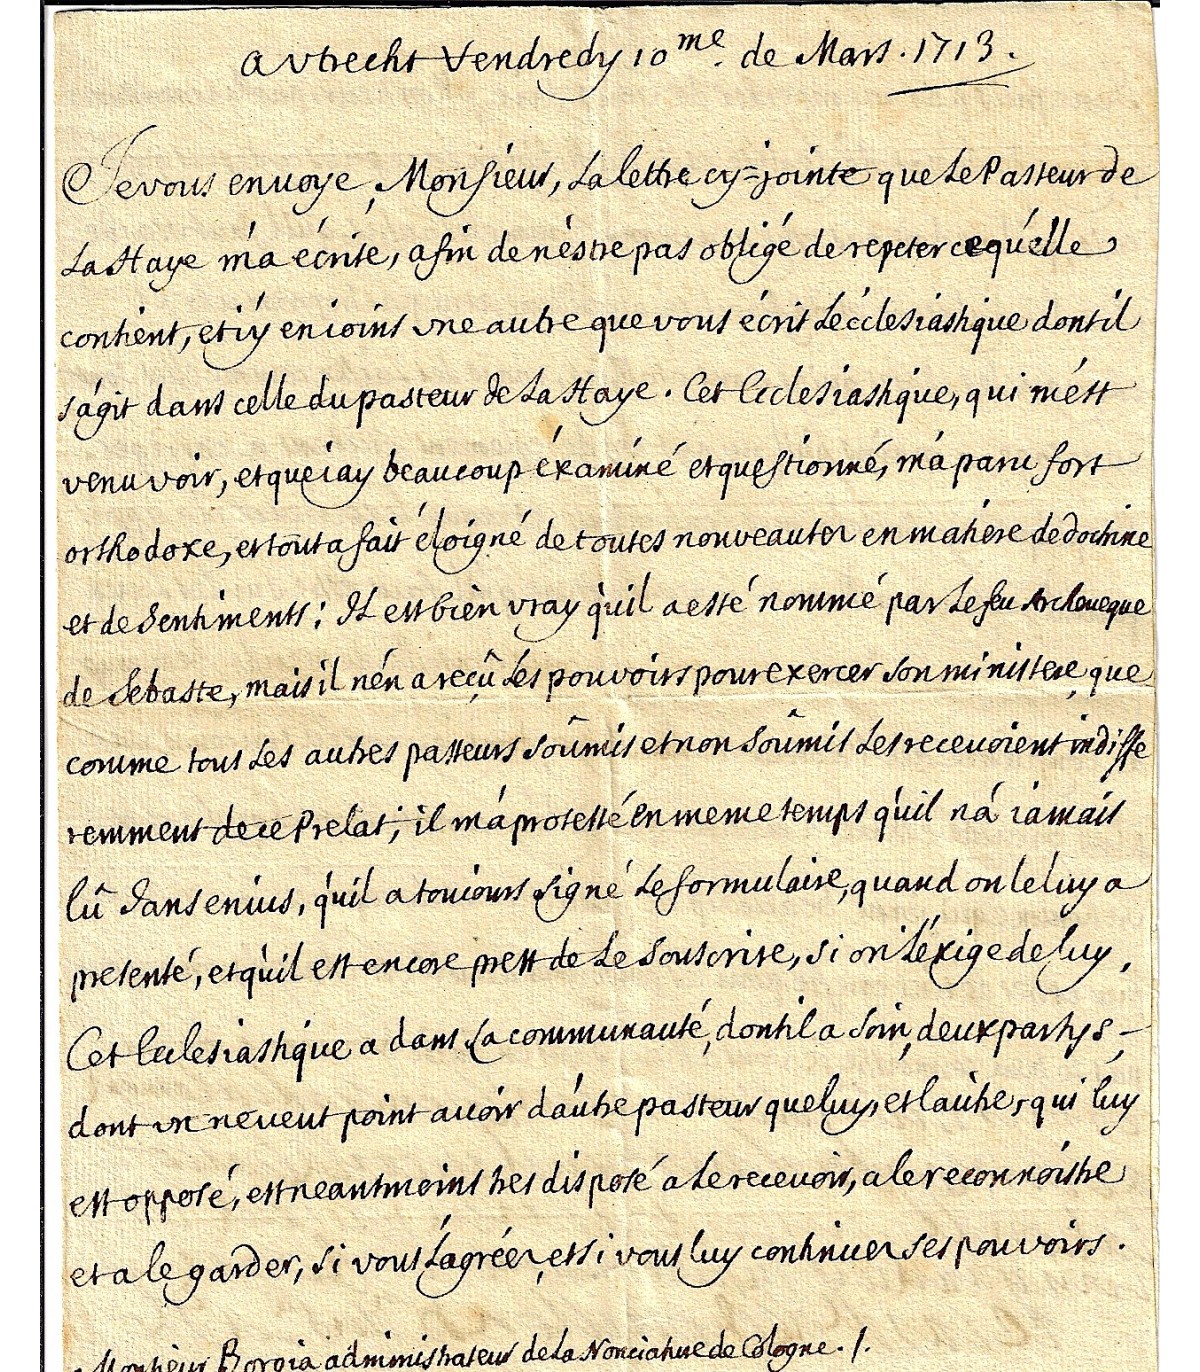 a Vtrecht Vendredy 10me. de Mars. 1713.
Je vous envoye, Monsieur, La lettre cy=jointe que Le Pasteur de
La Haye m'a écrite, afin de n'estre pas obligé de repeter ce qu'elle
contient, et i'y en ioins vne autre que vous écrit L'écclesiastique dont il
s'ágit dans celle du pasteur de La Haye. Cet Ecclesiastique, qui m'est
venu voir, et que iay beaucoup éxaminé et questionné, m'a paru fort
orthodoxe, et tout a fait éloigné de toutes nouveautez en matiére de doctrine
et de Sentiments; Il est bien vray qu'il a esté nommé par Le feu Archeueque
de Sebaste, mais il n'en a reçû Les pouvoirs pour exercer Son ministere, que
comme tous Les autres pasteurs soûmis et non soûmis Les recevoient indiffe
remment de ce Prelat; il m'a protesté en meme temps qu'il n'a iamais
lû Jansenius, qu'il a toujours signé Le formulaire, quand on le luy a
presenté, et qu'il est encore prest de Le Souscrire, si on L'éxige de luy,
Cet Ecclesiastique a dans La communauté, dont il a soin, deux partys,
dont vn ne veut point avoir d'autre pasteur que luy, et l'autre, qui luy
est opposé, est neantmoins tres disposé a Le recevoir, a le reconnoistre
et a le garder, si vous L'agréez, et si vous luy continuez ses pouvoirs.
Monsieur Borgia administrateur de la Nonciature de Cologne. /.